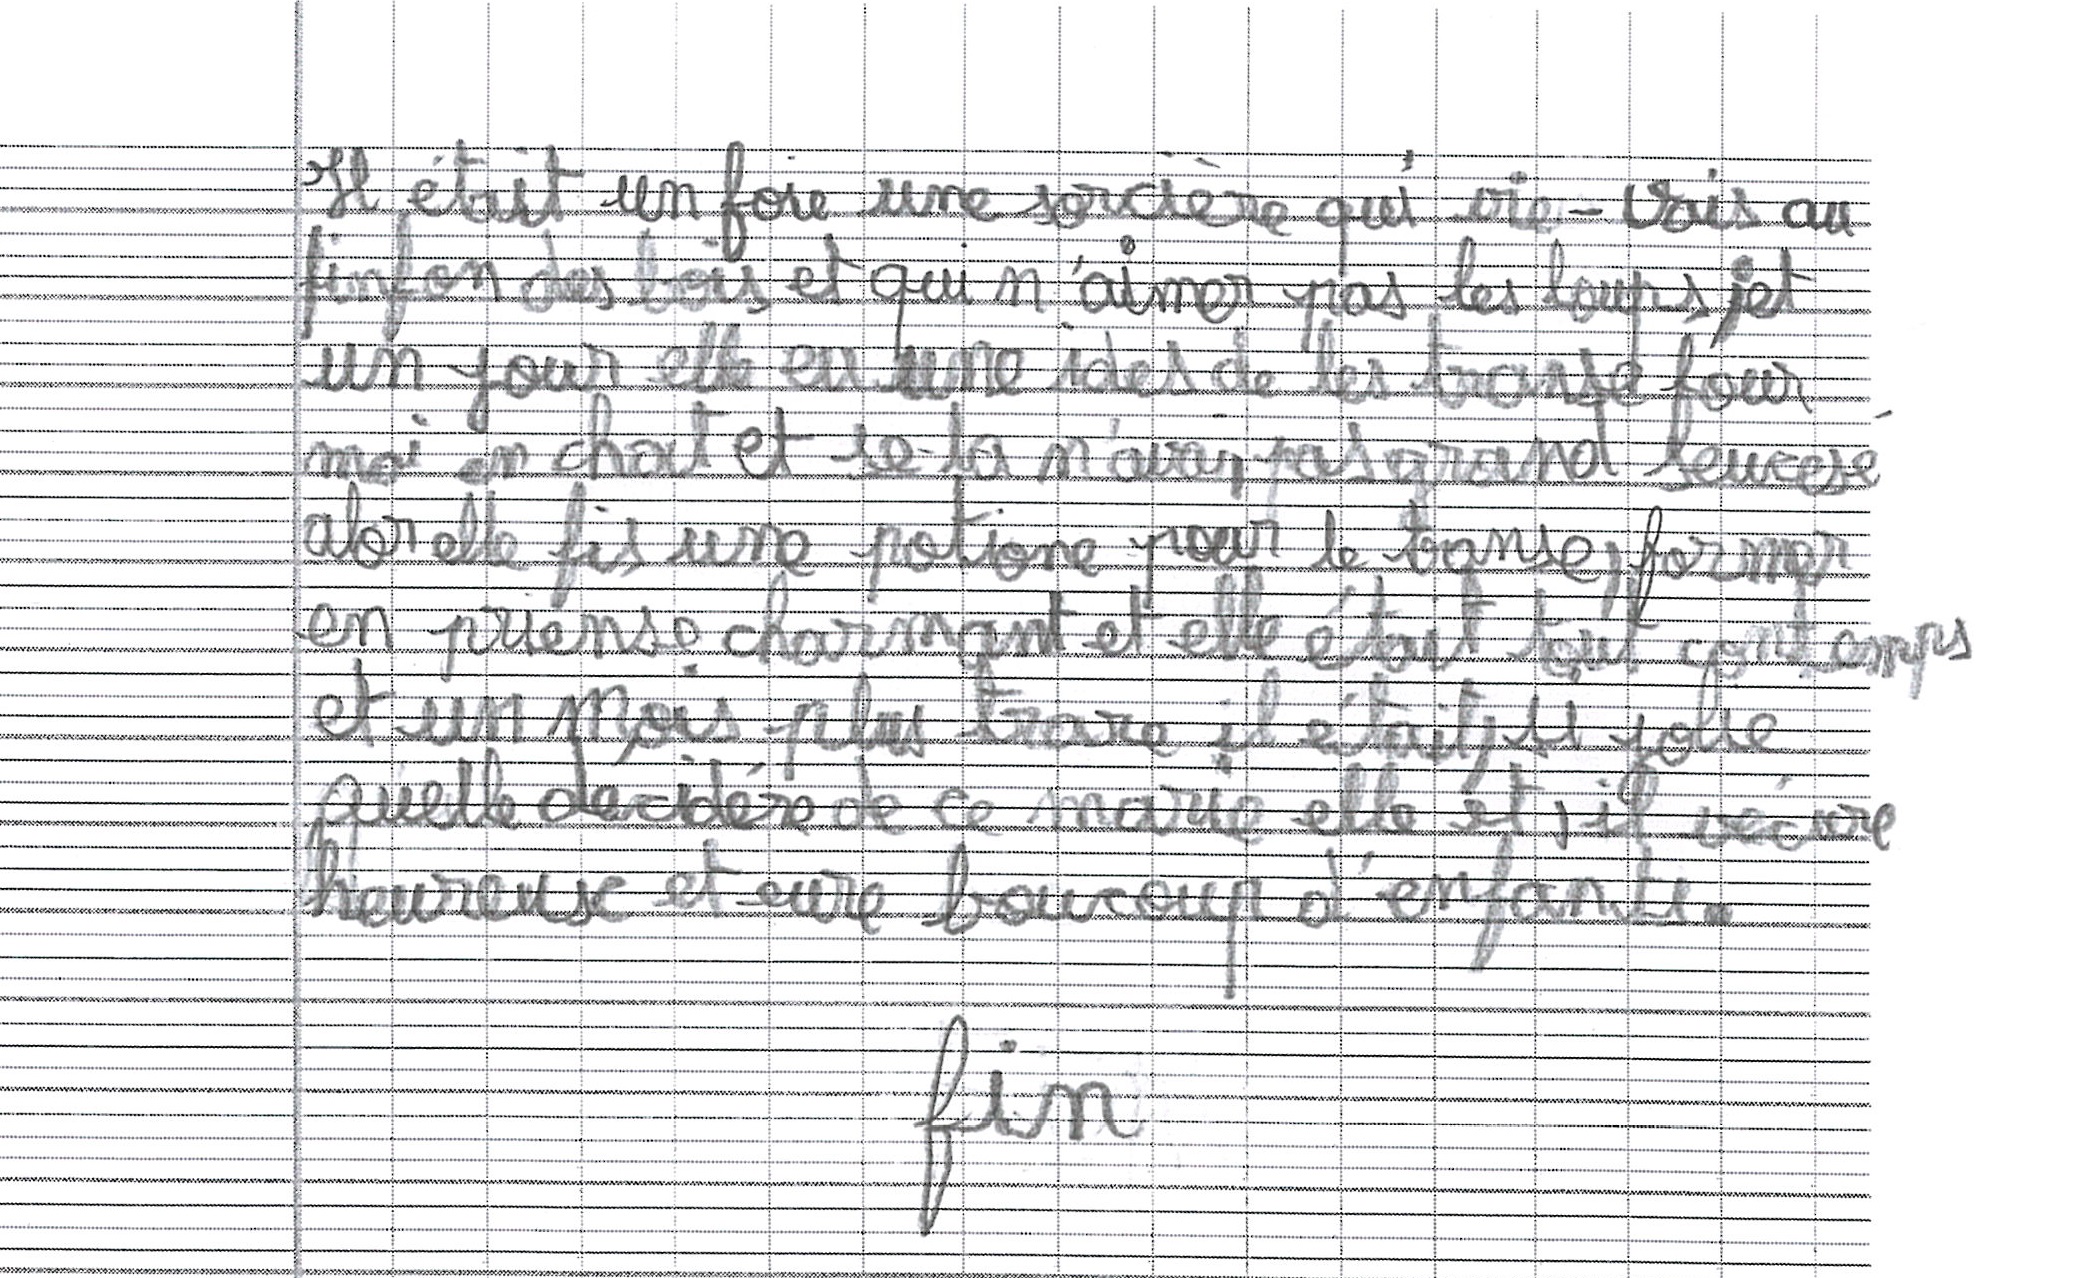 Il était un foie une sorcière qui vie-vais au
finfon des bois et qui n'aimer pas les loups et
un jour elle en une ides de les transe four
moi en chat et se-la n'avan pas grand seucesé
alor elle fis une potione pour le transe, former
en priense charmant et elle était tout contemps
et un mois plus trare il était si jolie
quelle décidère de ce marie elle et, il vécure
heureuse et eure boucoup d'enfants.
fin